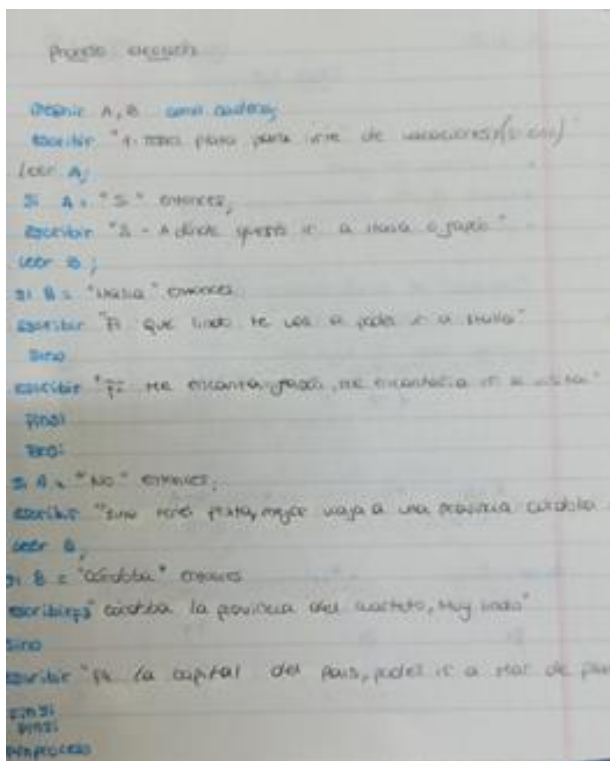 Proceso
Definir A, B como cadena;
escribir "1. tenes plata para irte de vacaciones?(si o no)"
leer A;
Si A = "Si" entonces,
escribir "2 - A dónde ir a Italia o Japón"
leer B;
si B = "Italia" entonces
escribir "que lindo te vas a poder ir a Italia"
sino
escribir "Me encanta Japón, me encantaría ir a"
finsi
sino
si A = "No" entonces,
escribir "sino tenes plata, mejor viaja a una provincia córdoba
leer B,
si B = "córdoba" entonces
escribir córdoba la provincia del cuarteto, Muy lindo"
sino
escribir "la capital del país, podes ir a Mar de
finsi
finsi
finproceso